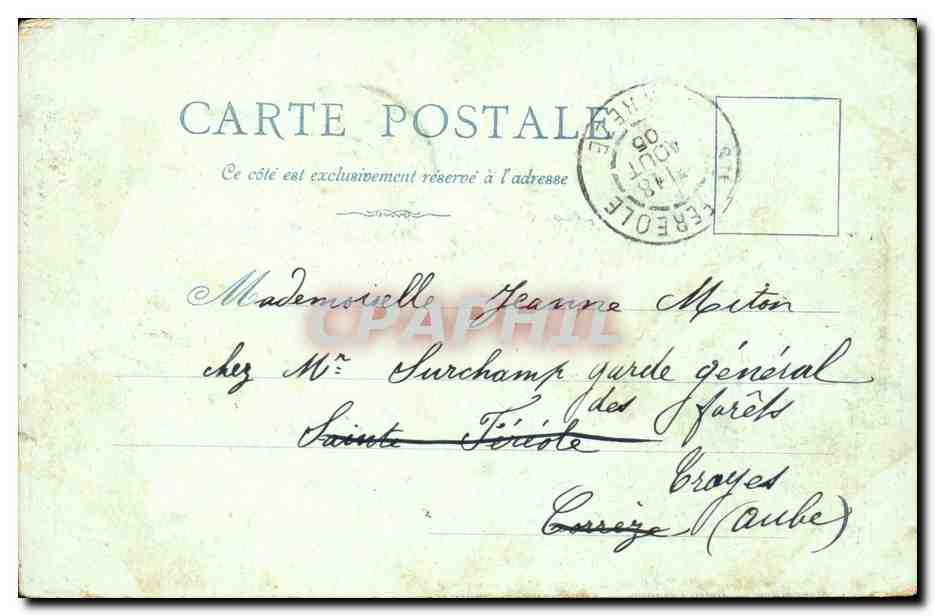 CARTE POSTALE
Ce côté est exclusivement réservé à l'adresse
STE FEREOLE
CORREZE
18
AOUT
05
CPAPHIL
Mademoiselle Jeanne Miton
chez Mr. Surchamp garde général
des forêts
Sainte Féréole
Troyes
Corrèze (Aube)